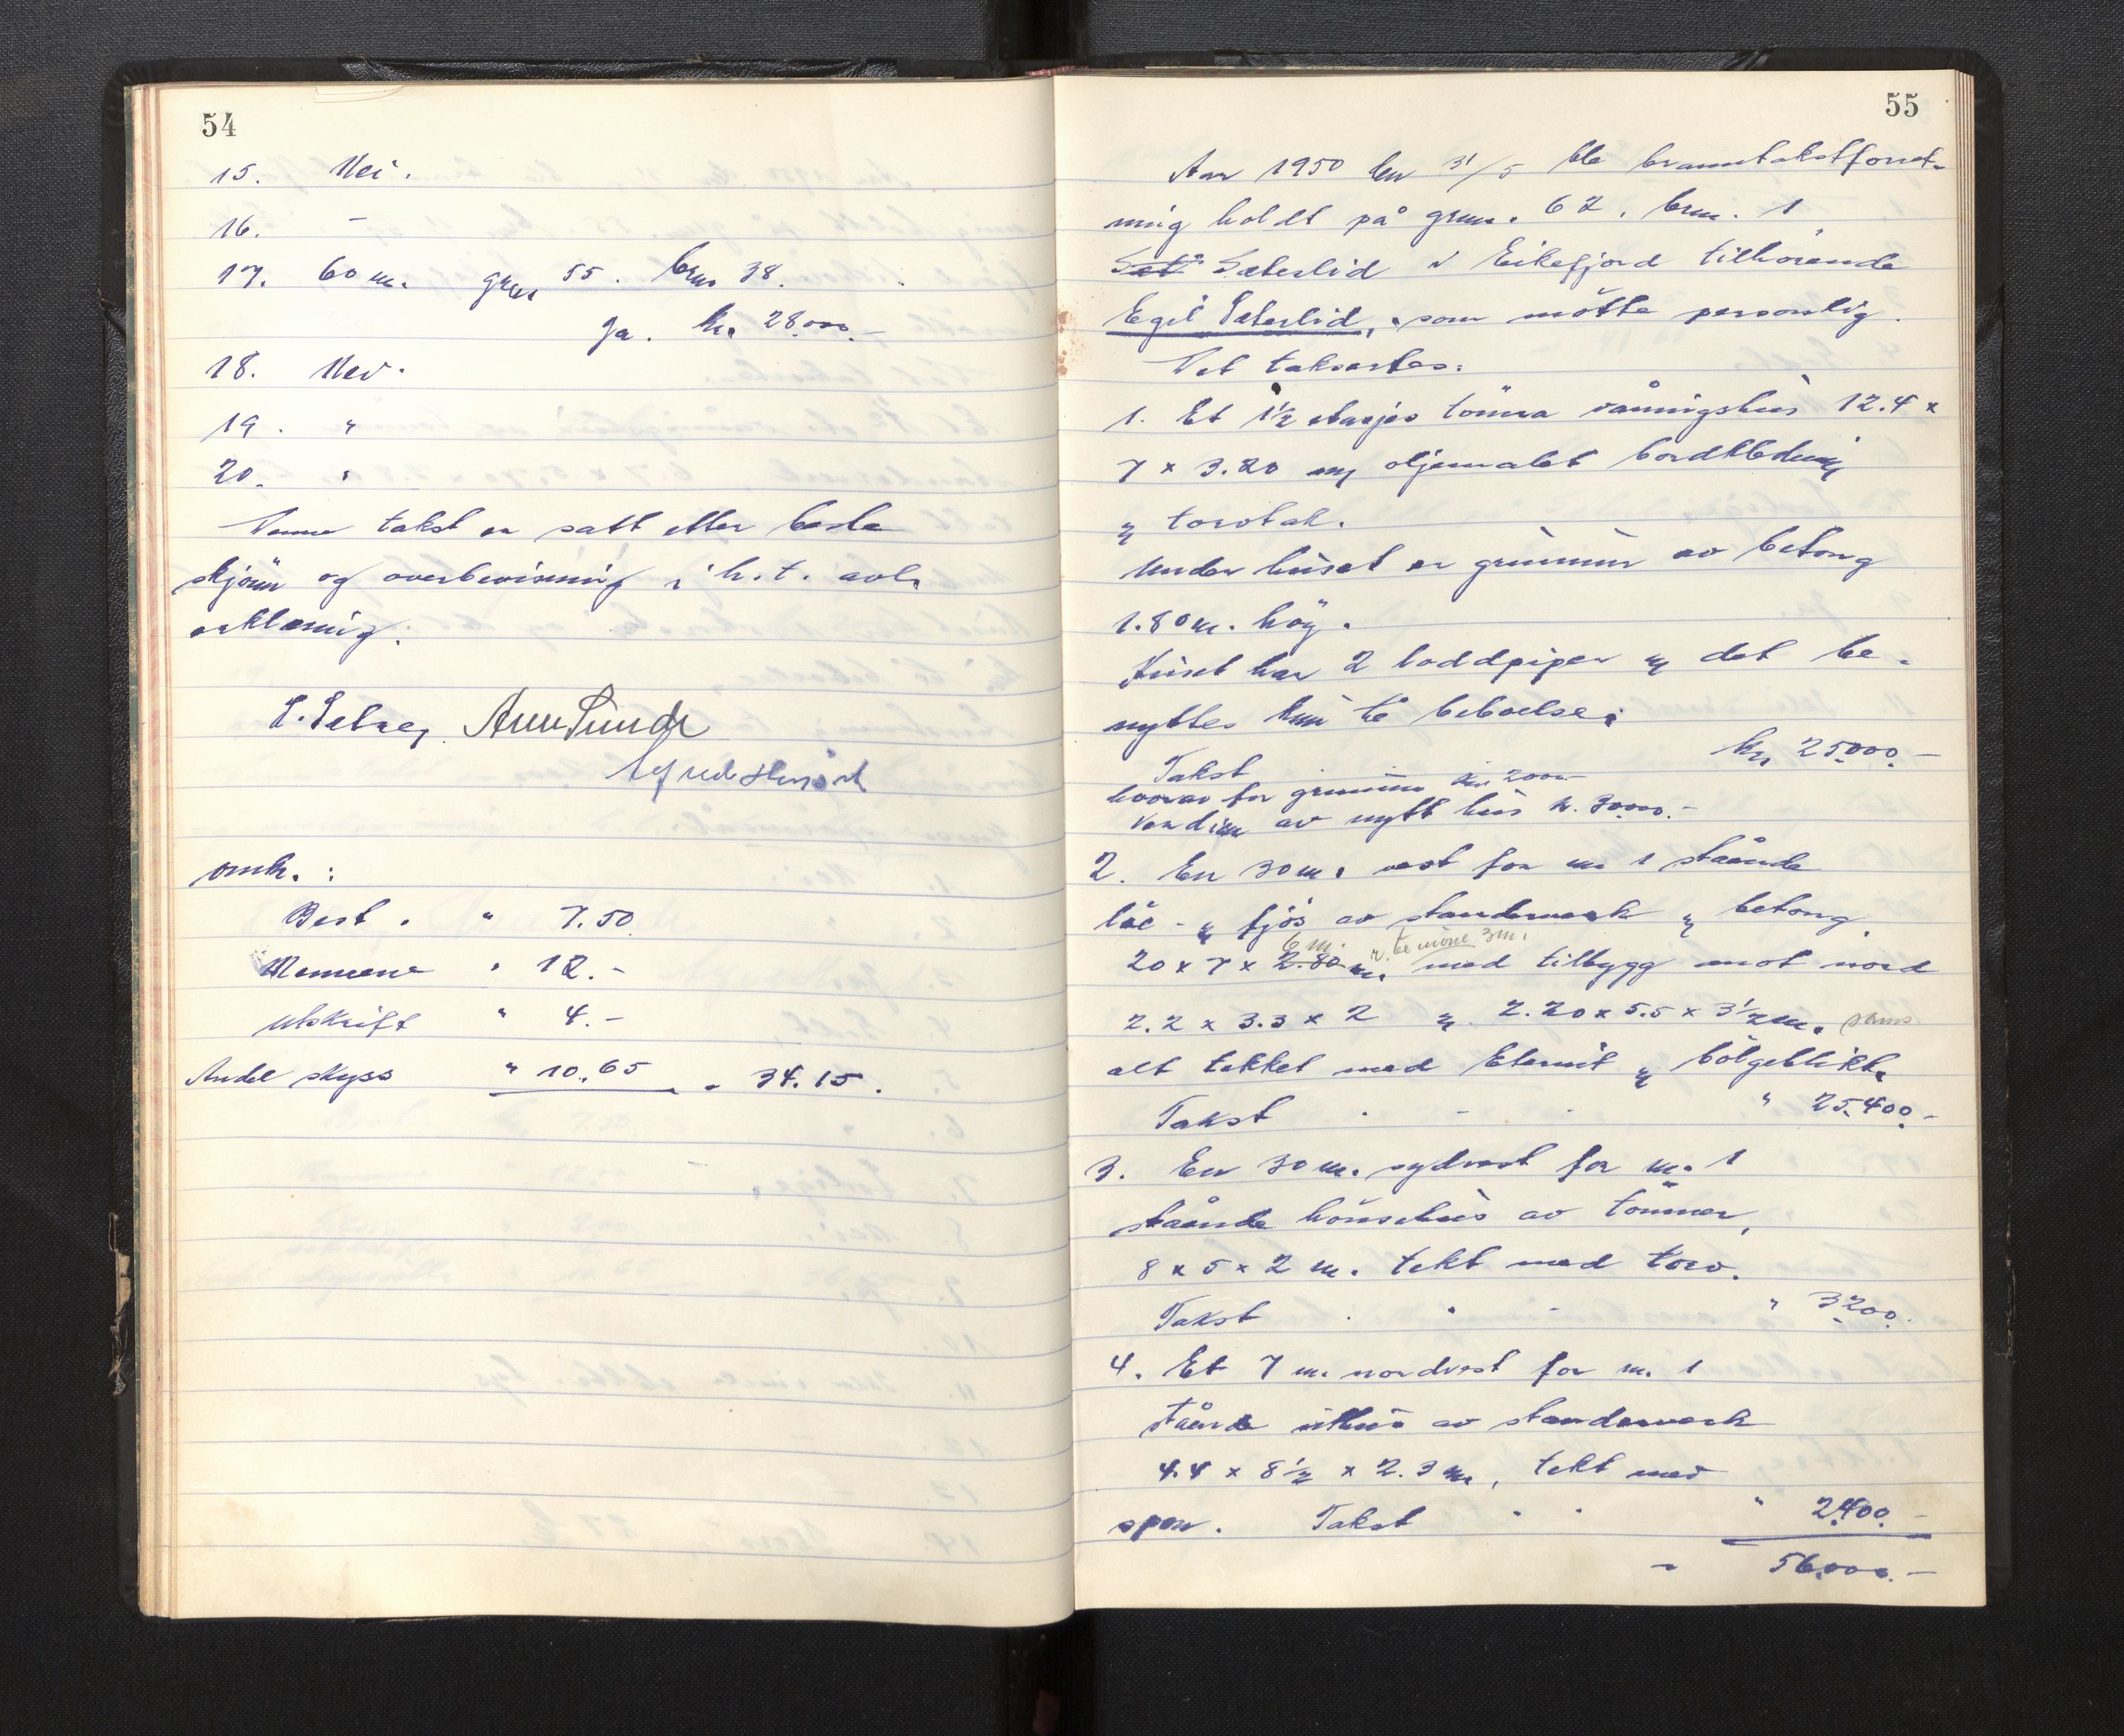 54
15. Nei.
16. –
17. 60 m. gnr. 55. brn. 38.
Ja. kr. 28.000.–
18. Nei.
19. "
20. "
Denne takst er satt etter beste
skjönn og overbevisning i h.t. avl.
erklæring.
Omk. :
Best. " 7.50
Mennene " 12.–
Utskrift " 4.–
Andel skyss " 10.65 " 34.15.
55
Aar 1950 den 31/5 ble branntakstforret-
ning holdt på grnr. 62, brn. 1
Sæterlid i Eikefjord tilhörende
Egil Sæterlid, som mötte personlig.
Det takseres:
1. Et 1½ etasjes tömra våningshus 12.4 x
7 x 3.20 m/ oljemalet bordkledning
og torvtak.
Under huset er grunnmur av betong
1.80 m. höy.
Huset har 2 loddpiper og det be-
nyttes kun til beboelse.
Takst kr. 25.000.–
hvorav for grunnmur kr. 2000.–
Verdien av nytt hus kr. 30.000.–
2. En 30 m. vest for nr. 1 stående
löe- og fjös av standerverk og betong.
6 m. til möne 3 m.
20 x 7 x 2.80 m. med tilbygg mot nord
2.2 x 3.3 x 2 og 2.20 x 5.5 x 3½ m.
alt tekket med Eternit og bölgeblikk.
Takst " 25.400.–
3. En 30 m. sydvest for nr. 1
stående hönsehus av tömmer,
8 x 5 x 2 m. tekt med torv.
Takst " 3200.
4. Et 7 m. nordvest for nr. 1
stående uthus av standerverk
4.4 x 8½ x 2.3 m, tekt med
spon. Takst " 2.400.–
" 56.000.–